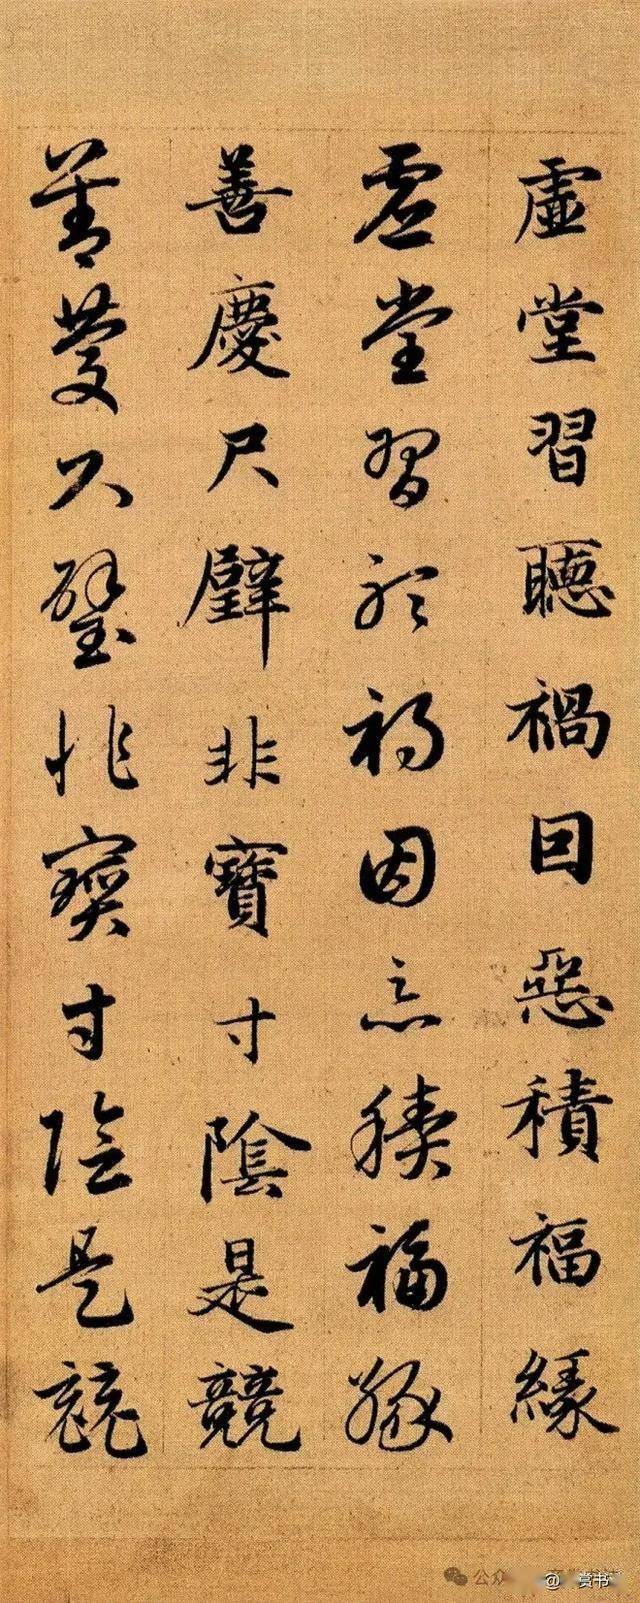 虛堂習聽禍因惡積福緣
虛堂習聽禍因惡積福緣
善慶尺璧非寶寸陰是競
善慶尺璧非寶寸陰是競
公众
@ 赏书